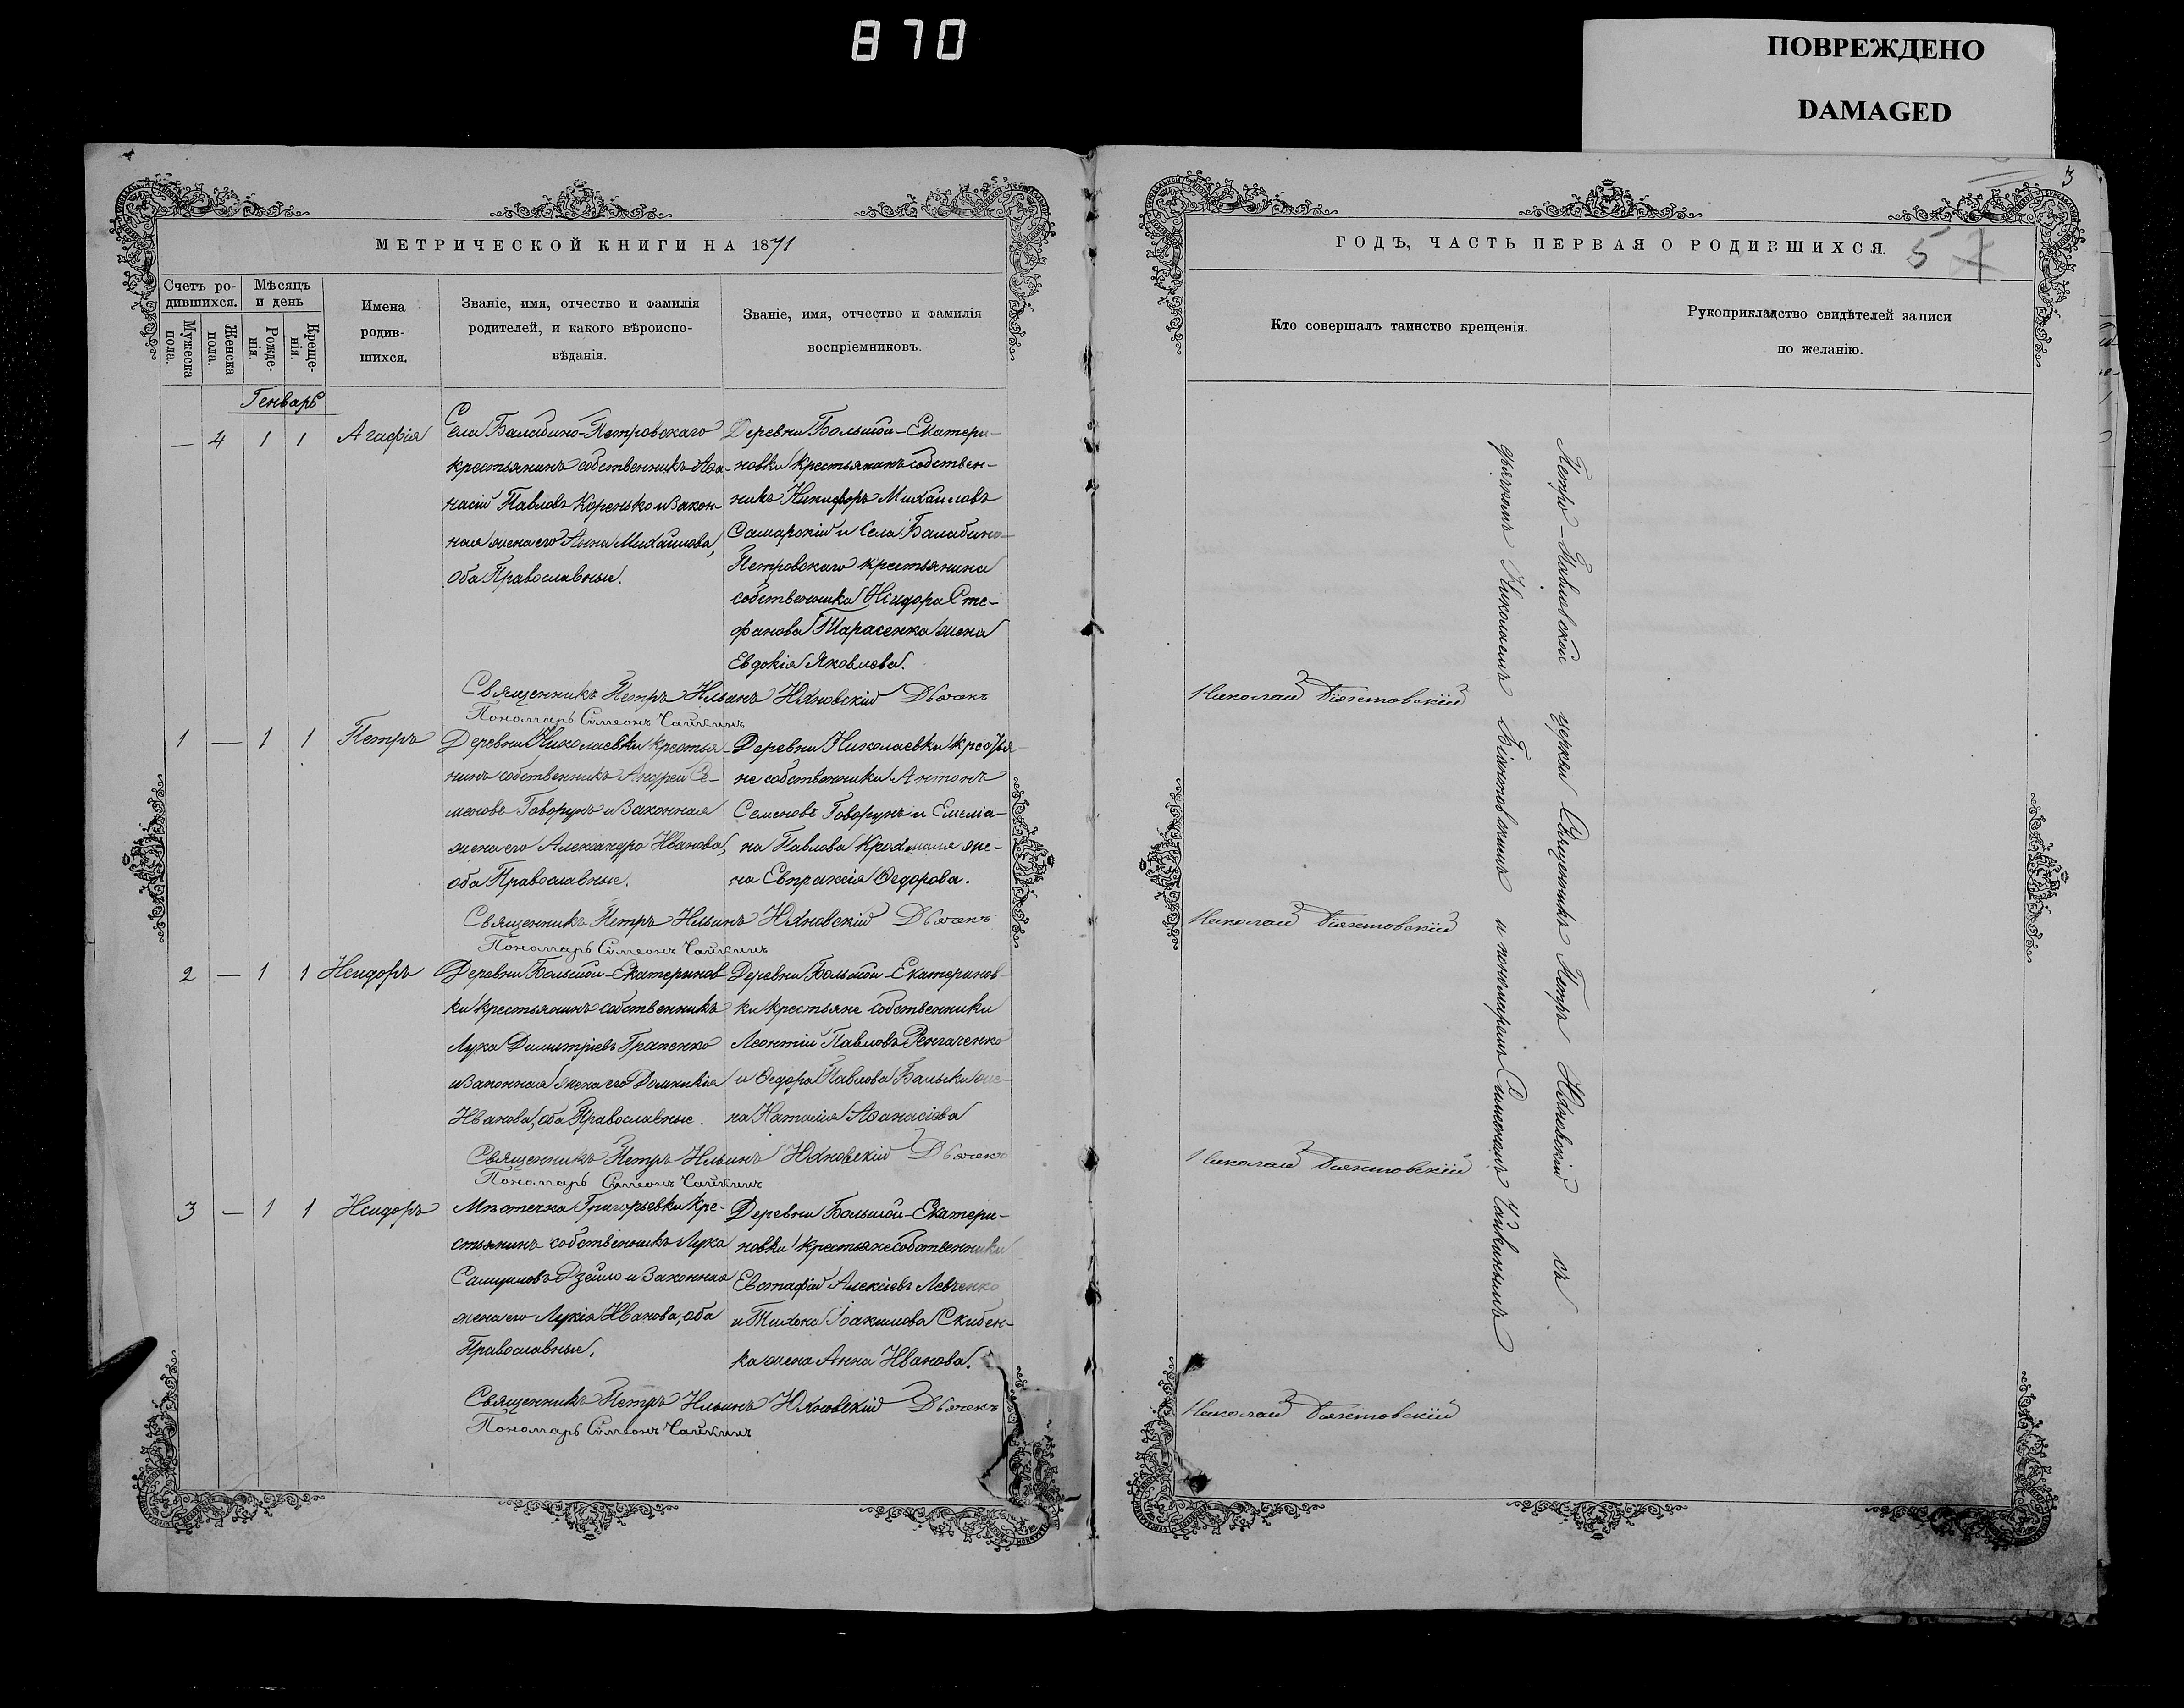 870
ПОВРЕЖДЕНО
DAMAGED
МЕТРИЧЕСКОЙ КНИГИ НА 1871
Счетъ ро-
дившихся.
Мѣсяцъ
и день
Мужеска
пола.
Женска
пола.
Рожде-
нія.
Креще-
нія.
Имена
родив-
шихся.
Званіе, имя, отчество и фамилія
родителей, и какого вѣроиспо-
вѣданія.
Званіе, имя, отчество и фамилія
воспріемниковъ.
Генварь
— 4 1 1 Агафія
Села Балабино-Петровскаго
крестьянинъ собственникъ Аѳа-
насій Павловъ Коренько и закон-
ная жена его Анна Михаилова,
оба Православные.
Деревни Большой-Екатери-
новки крестьянинъ собствен-
никъ Никифоръ Михаиловъ
Самарскій и Села Балабино-
Петровскаго крестьянина
собственника Исидора Сте-
фанова Тарасенка жена
Евдокія Яковлева.
Священникъ Петръ Ильинъ Юхновскій Дьячекъ
Пономарь Симеонъ Чайкинъ
1 — 1 1 Петръ
Деревни Николаевки крестья-
нинъ собственникъ Андрей Се-
меновъ Говорунъ и законная
жена его Александра Иванова,
оба Православные.
Деревни Николаевки крестья-
не собственники Антонъ
Семеновъ Говорунъ и Емеліа-
на Павлова Крохмаля же-
на Евпраксія Ѳедорова.
Священникъ Петръ Ильинъ Юхновскій Дьячекъ
Пономарь Симеонъ Чайкинъ
2 — 1 1 Исидоръ
Деревни Большой-Екатеринов
ки крестьянинъ собственникъ
Лука Димитріевъ Грапенко
и законная жена его Домникія
Иванова, оба Православные.
Деревни Большой-Екатеринов
ки крестьяне собственники
Леонтій Павловъ
и Ѳедора Павлова же-
на Наталія Аѳанасіева
Священникъ Петръ Ильинъ Юхновскій Дьячекъ
Пономарь Симеонъ Чайкинъ
3 — 1 1 Исидоръ
Мѣстечка Григорьевки кре-
стьянинъ собственникъ Лука
Самуиловъ и законная
жена его Лукія Иванова, оба
Православные.
Деревни Большой-Екатери-
новки крестьяне собственники
Евстафій Алексіевъ Левченко
и Тихона Іакимова Скибен-
ка жена Анна Иванова.
Священникъ Петръ Ильинъ Юхновскій Дьячекъ
Пономарь Симеонъ Чайкинъ
3
ГОДЪ, ЧАСТЬ ПЕРВАЯ О РОДИВШИХСЯ.
5 7
Кто совершалъ таинство крещенія.
Рукоприкладство свидѣтелей записи
по желанію.
Петро-Павловской церкви Священникъ Петръ Юхновскій съ
дьячкомъ Николаемъ и пономаремъ Симеономъ Чайкинымъ
Николай
Николай
Николай
Николай